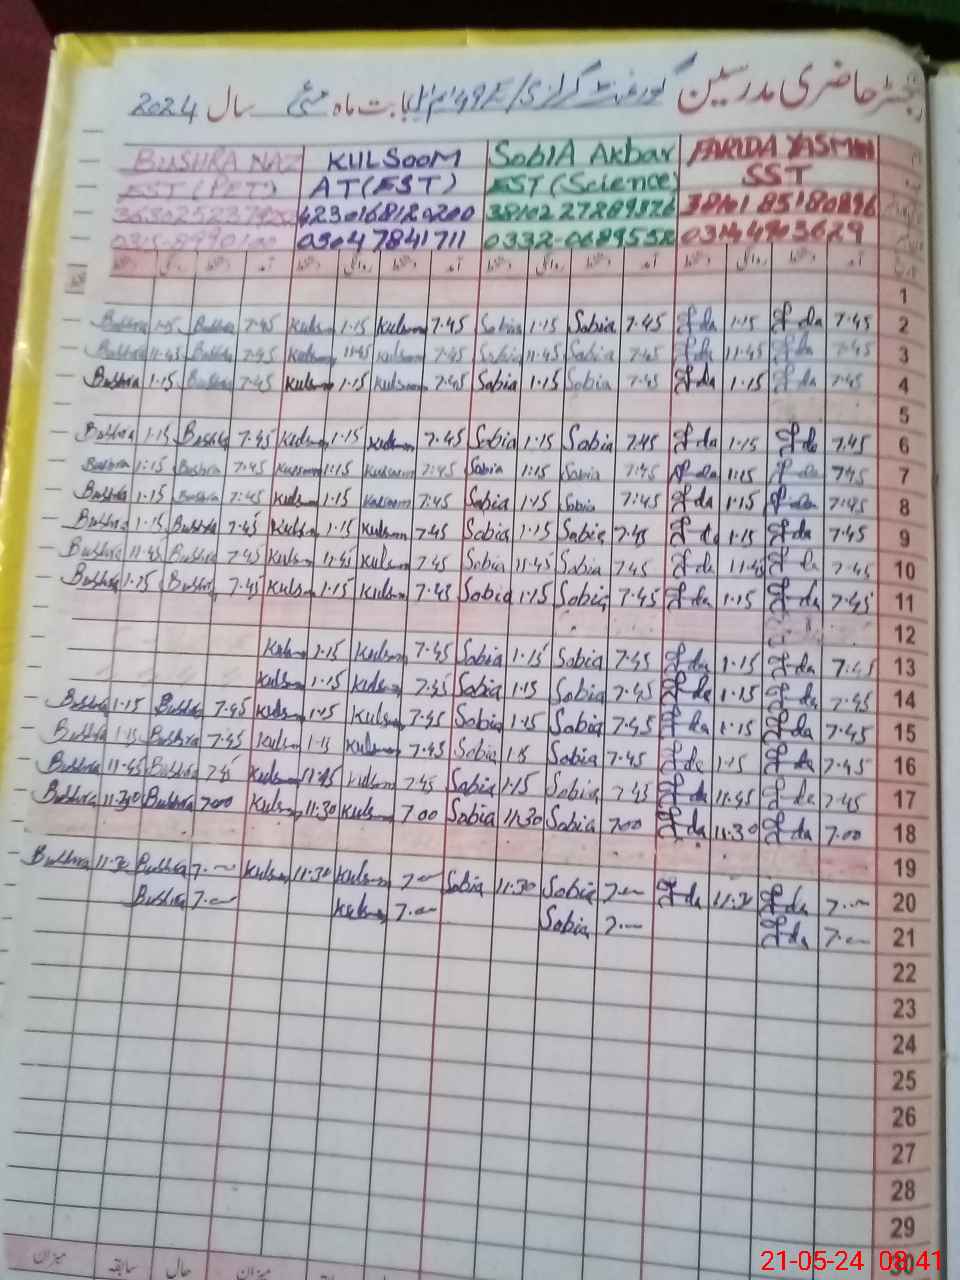 رجسٹر حاضری مدرسین گورنمنٹ گرلز بابت ماہ مئی سال 2024
BUSHRA NAZ KULSOOM SOBIA Akbar FARIDA YASMIN
EST (PET) AT (EST) EST (Science) SST
4230168120200 3810227289376 3810185180896
0315-8990100 03047841711 0332-0689552 03144903629
دستخط روانگی دستخط آمد دستخط روانگی دستخط آمد دستخط روانگی دستخط آمد دستخط روانگی دستخط آمد
1
Bushra 1.15 Bushra 7.45 Kulsoom 1.15 Kulsoom 7.45 Sobia 1.15 Sobia 7.45 F-da 1.15 F-da 7.45 2
Bushra 11.45 Bushra 7.45 Kulsoom 11.45 Kulsoom 7.45 Sobia 11.45 Sobia 7.45 F-da 11.45 F-da 7.45 3
Bushra 1.15 Bushra 7.45 Kulsoom 1.15 Kulsoom 7.45 Sobia 1.15 Sobia 7.45 F-da 1.15 F-da 7.45 4
5
Bushra 1.15 Bushra 7.45 Kulsoom 1.15 Kulsoom 7.45 Sobia 1.15 Sobia 7.45 F-da 1.15 F-da 7.45 6
Bushra 1:15 Bushra 7.45 Kulsoom 1:15 Kulsoom 7:45 Sobia 1:15 Sobia 7:45 F-da 1:15 F-da 7:45 7
Bushra 1.15 Bushra 7:45 Kulsoom 1.15 Kulsoom 7.45 Sobia 1.15 Sobia 7.45 F-da 1.15 F-da 7.45 8
Bushra 1.15 Bushra 7.45 Kulsoom 1.15 Kulsoom 7.45 Sobia 1.15 Sobia 7.45 F-da 1.15 F-da 7.45 9
Bushra 11.45 Bushra 7.45 Kulsoom 11.45 Kulsoom 7.45 Sobia 11.45 Sobia 7.45 F-da 11.45 F-da 7.45 10
Bushra 1.15 Bushra 7.45 Kulsoom 1.15 Kulsoom 7.45 Sobia 1.15 Sobia 7.45 F-da 1.15 F-da 7.45 11
12
Kulsoom 1.15 Kulsoom 7.45 Sobia 1.15 Sobia 7.45 F-da 1.15 F-da 7.45 13
Kulsoom 1.15 Kulsoom 7.45 Sobia 1.15 Sobia 7.45 F-da 1.15 F-da 7.45 14
Bushra 1.15 Bushra 7.45 Kulsoom 1.15 Kulsoom 7.45 Sobia 1.15 Sobia 7.45 F-da 1.15 F-da 7.45 15
Bushra 1.15 Bushra 7.45 Kulsoom 1.15 Kulsoom 7.45 Sobia 1.15 Sobia 7.45 F-da 1.15 F-da 7.45 16
Bushra 11.45 Bushra 7.45 Kulsoom 11.45 Kulsoom 7.45 Sobia 1.15 Sobia 7.45 F-da 11.45 F-da 7.45 17
Bushra 11.30 Bushra 7.00 Kulsoom 11.30 Kulsoom 7.00 Sobia 11.30 Sobia 7.00 F-da 11.30 F-da 7.00 18
19
Bushra 11.30 Bushra 7.00 Kulsoom 11.30 Kulsoom 7.00 Sobia 11.30 Sobia 7.00 F-da 11.30 F-da 7.00 20
Bushra 7.00 Kulsoom 7.00 Sobia 7.00 F-da 7.00 21
22
23
24
25
26
27
28
29
30
میزان سابقہ حال میزان
21-05-24 08:41